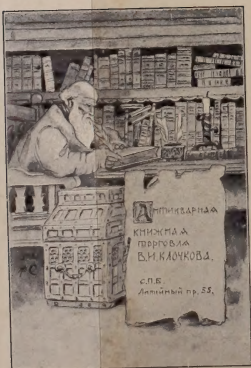 Антикварная
книжная
торговля
В.И. Клочкова.
С.П.Б.
Литейный пр. 55.